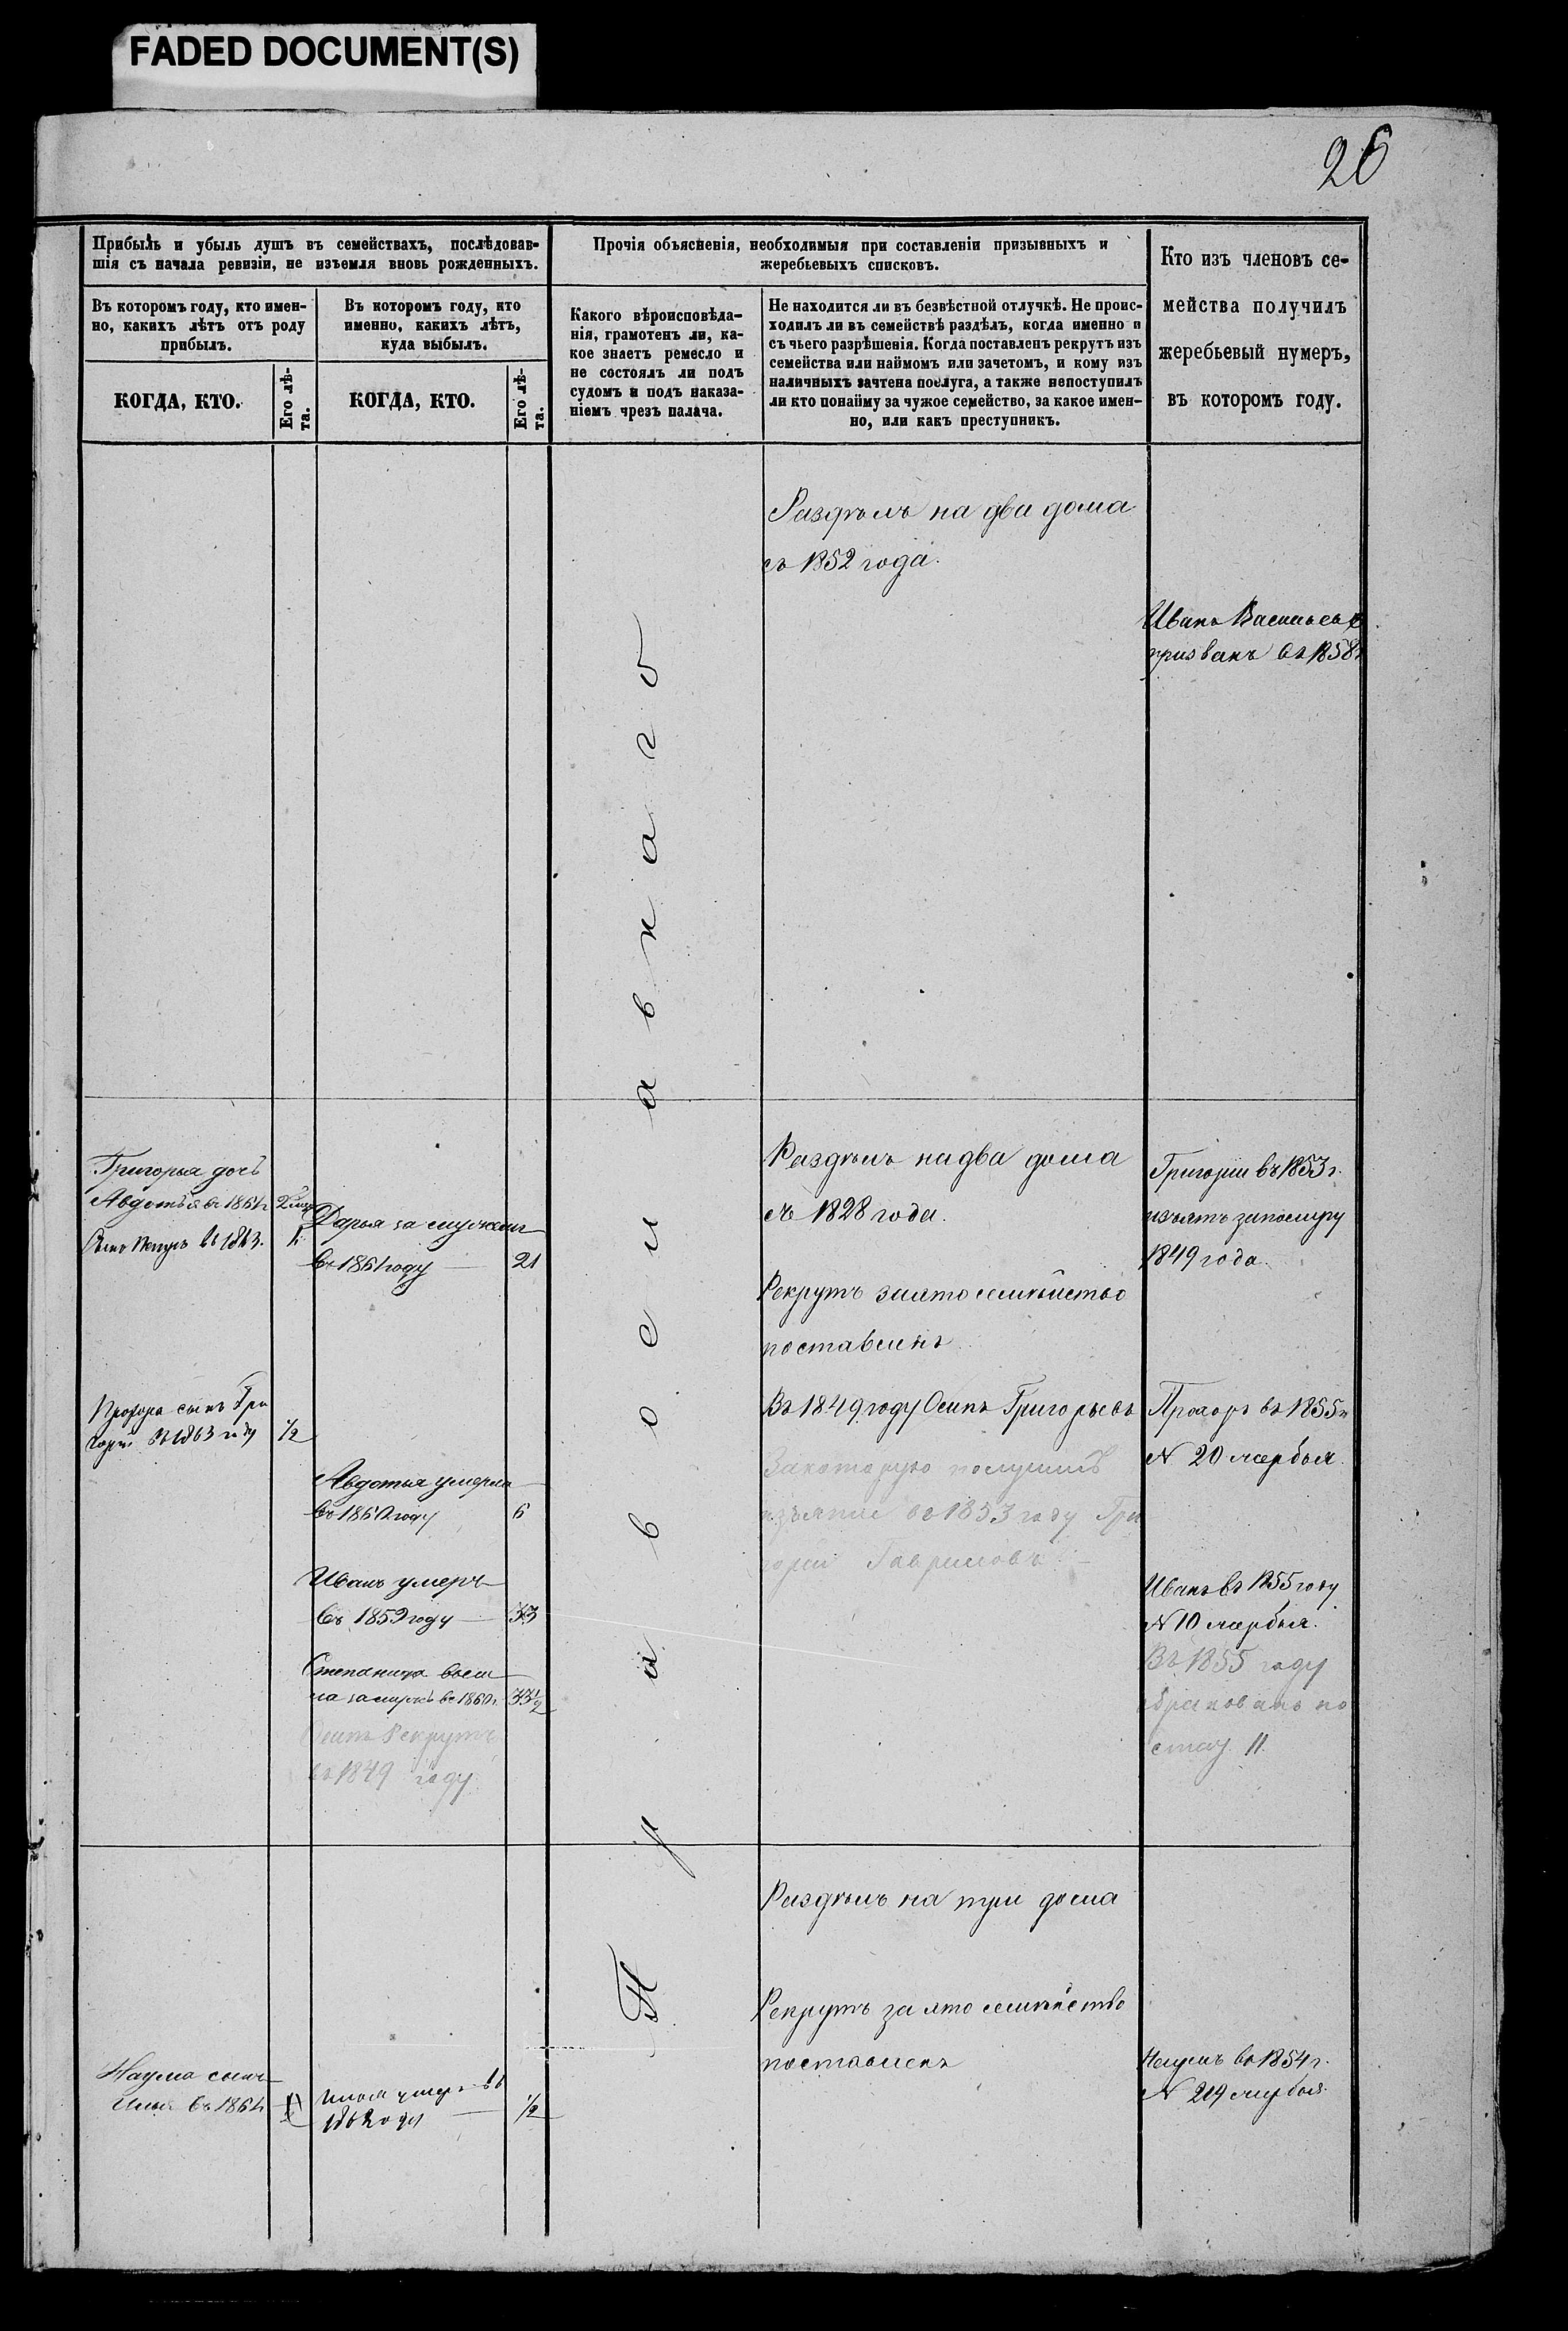 FADED DOCUMENT(S)
26
Прибыль и убыль душъ въ семействахъ, послѣдовав-
шія съ начала ревизіи, не изъемля вновь рожденныхъ.
Въ которомъ году, кто имен-
но, какихъ лѣтъ отъ роду
прибылъ.
КОГДА, КТО.
Его лѣ-
та.
Въ которомъ году, кто
именно, какихъ лѣтъ,
куда выбылъ.
КОГДА, КТО.
Его лѣ-
та.
Прочія объясненія, необходимыя при составленіи призывныхъ и
жеребьевыхъ списковъ.
Какого вѣроисповѣда-
нія, грамотенъ ли, ка-
кое знаетъ ремесло и
не состоялъ ли подъ
судомъ и подъ наказа-
ніемъ чрезъ палача.
Не находится ли въ безвѣстной отлучкѣ. Не проис-
ходилъ ли въ семействѣ раздѣлъ, когда именно и
съ чьего разрѣшенія. Когда поставленъ рекрутъ изъ
семейства или наймомъ или зачетомъ, и кому изъ
наличныхъ зачтена послуга, а также непоступилъ
ли кто понайму за чужое семейство, за какое имен-
но, или какъ преступникъ.
Кто изъ членовъ се-
мейства получилъ
жеребьевый нумеръ,
въ которомъ году.
Православнаго
Раздѣлъ на два дома
съ 1852 года.
Иванъ Васильевъ
призванъ въ 1858
Григорья дочь
Авдотья въ 1861
въ 1863.
Дарья за
въ 1861 году
21
Раздѣлъ на два дома
съ 1828 года.
Рекрутъ за это семѣйство
поставленъ
Въ 1849 году Осипъ Григорьевъ
Закоторую получилъ
изъятіе въ 1853 году Гри
горій Гавриловъ
Григорій въ 1853 г.
изъятъ
1849 года.
Прохора сынъ Гри
горій въ 1863 году
1/2
Авдотья умерла
въ 1860 году
6
Иванъ умеръ
въ 1859 году
33
Степанида выш
ла замужъ въ 1860 г.
33 1/2
Осипъ Рекрутъ
въ 1849 году
Прохоръ въ 1855 г
N 20 жербья
Иванъ въ 1855 году
N 10 жербья.
Въ 1855 году
бракованъ по
стат. 11.
Раздѣлъ на три дома
Рекрутъ за это семѣйство
поставленъ
Наума сынъ
Илья въ 1861
Илья умеръ въ
1862 году
1/2
Наумъ въ 1854 г.
N 219 жербья.